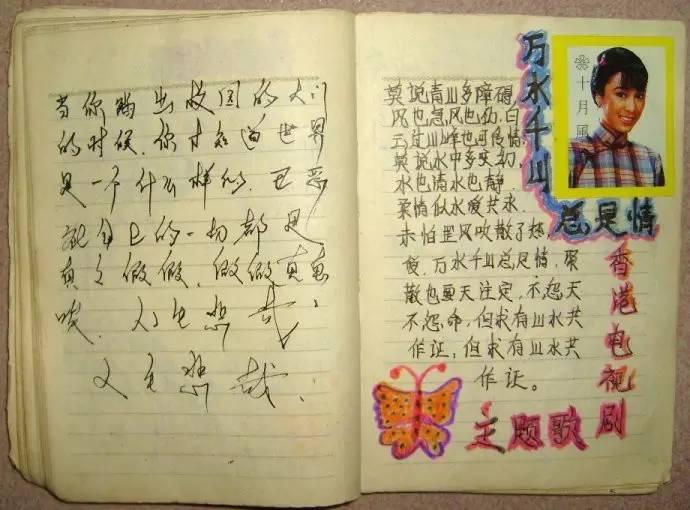 当你踏出校园的大门
的时候,你才知道世界
是一个什么样的,
的一切都是
真真假假,假假真真
唉,人生悲哉!
人生悲哉!
万水千山
总是情
十月風
莫说青山多障碍,
风也急风也劲,白
云过山峰也可传情,
莫说水中多变幻,
水也清水也静,
柔情似水爱共永,
未怕罡风吹散了热
爱,万水千山总是情,聚
散也要天注定,不怨天
不怨命,但求有山水共
作证,但求有山水共
作证。
香港电视剧
主题歌